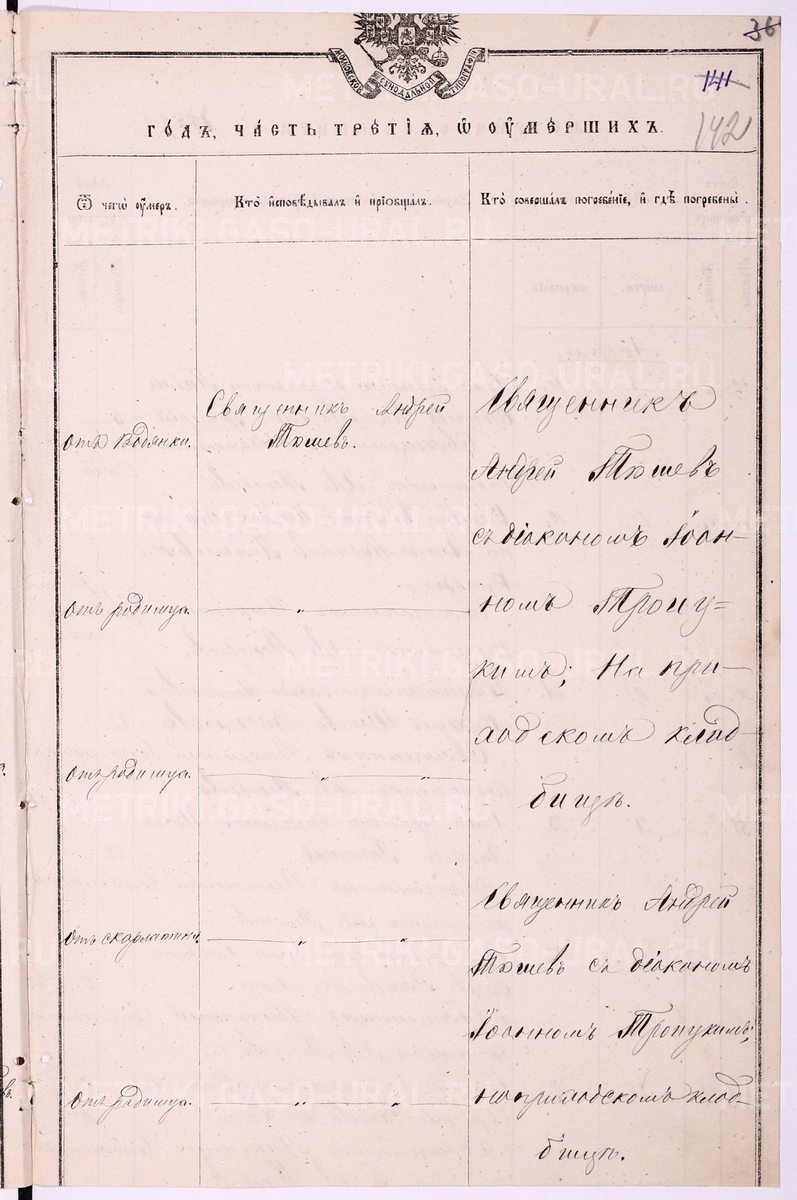 36
141
142
МОСКОВСКОЙ СѴНОДАЛЬНОЙ ТИПОГРАФІИ
го́дъ, ча́сть тре́тїѧ, ѡ҆ ᲂу҆ме́ршихъ.
Ѿ чегѡ̀ ᲂу҆́меръ.
Кто̀ и҆сповѣ́дывалъ и҆ прїѡбща́лъ.
Кто̀ соверша́лъ погребе́нїе, и҆ гдѣ̀ погребены̀.
отъ водянки.
Священникъ Андрей
Тюшевъ.
Священникъ
Андрей Тюшевъ
съ діакономъ Іоан-
номъ
кимъ; На при-
ходскомъ клад-
бищѣ.
отъ родимца.
— „ —
отъ родимца.
— „ — „ —
отъ скарлатины.
— „ — „ —
Священникъ Андрей
Тюшевъ съ діакономъ
Іоанномъ
на приходскомъ клад-
бищѣ.
отъ родимца.
— „ — „ —
METRIKI.GASO-URAL.RU